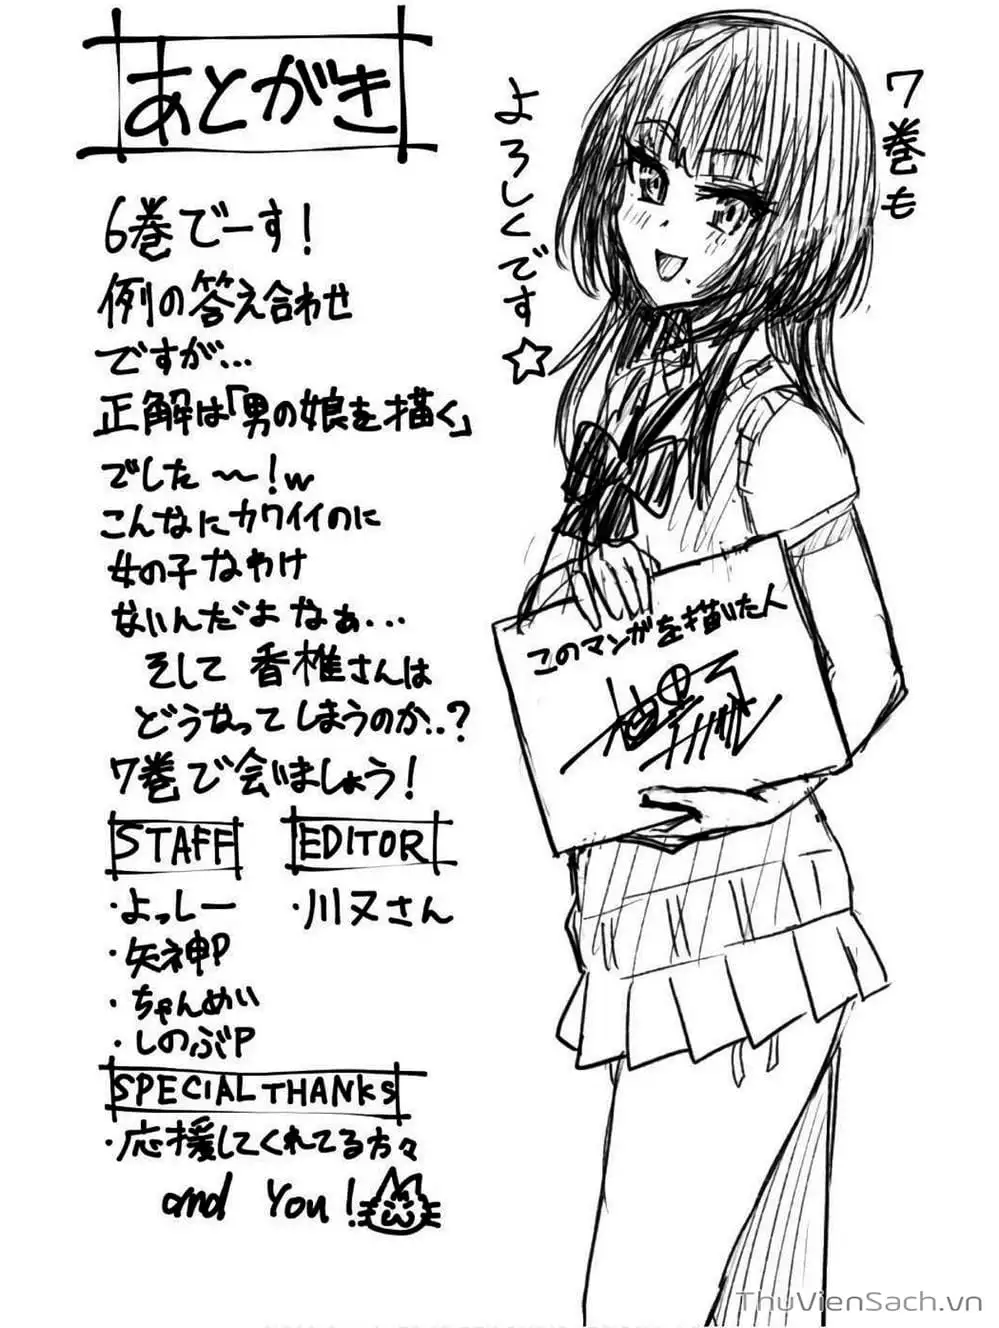 あとがき
6巻でーす!
例の答え合わせ
ですが…
正解は「男の娘を描く」
でした〜!w
こんなにカワイイのに
女の子なわけ
ないんだよなぁ…
そして 香椎さんは
どうなってしまうのか..?
7巻で会いましょう!
STAFF
・よっしー
・矢神P
・ちゃんめい
・しのぶP
EDITOR
・川又さん
SPECIAL THANKS
・応援してくれてる方々
and You!
7巻も
よろしくです☆
このマンガを描いた人
ThuVienSach.vn